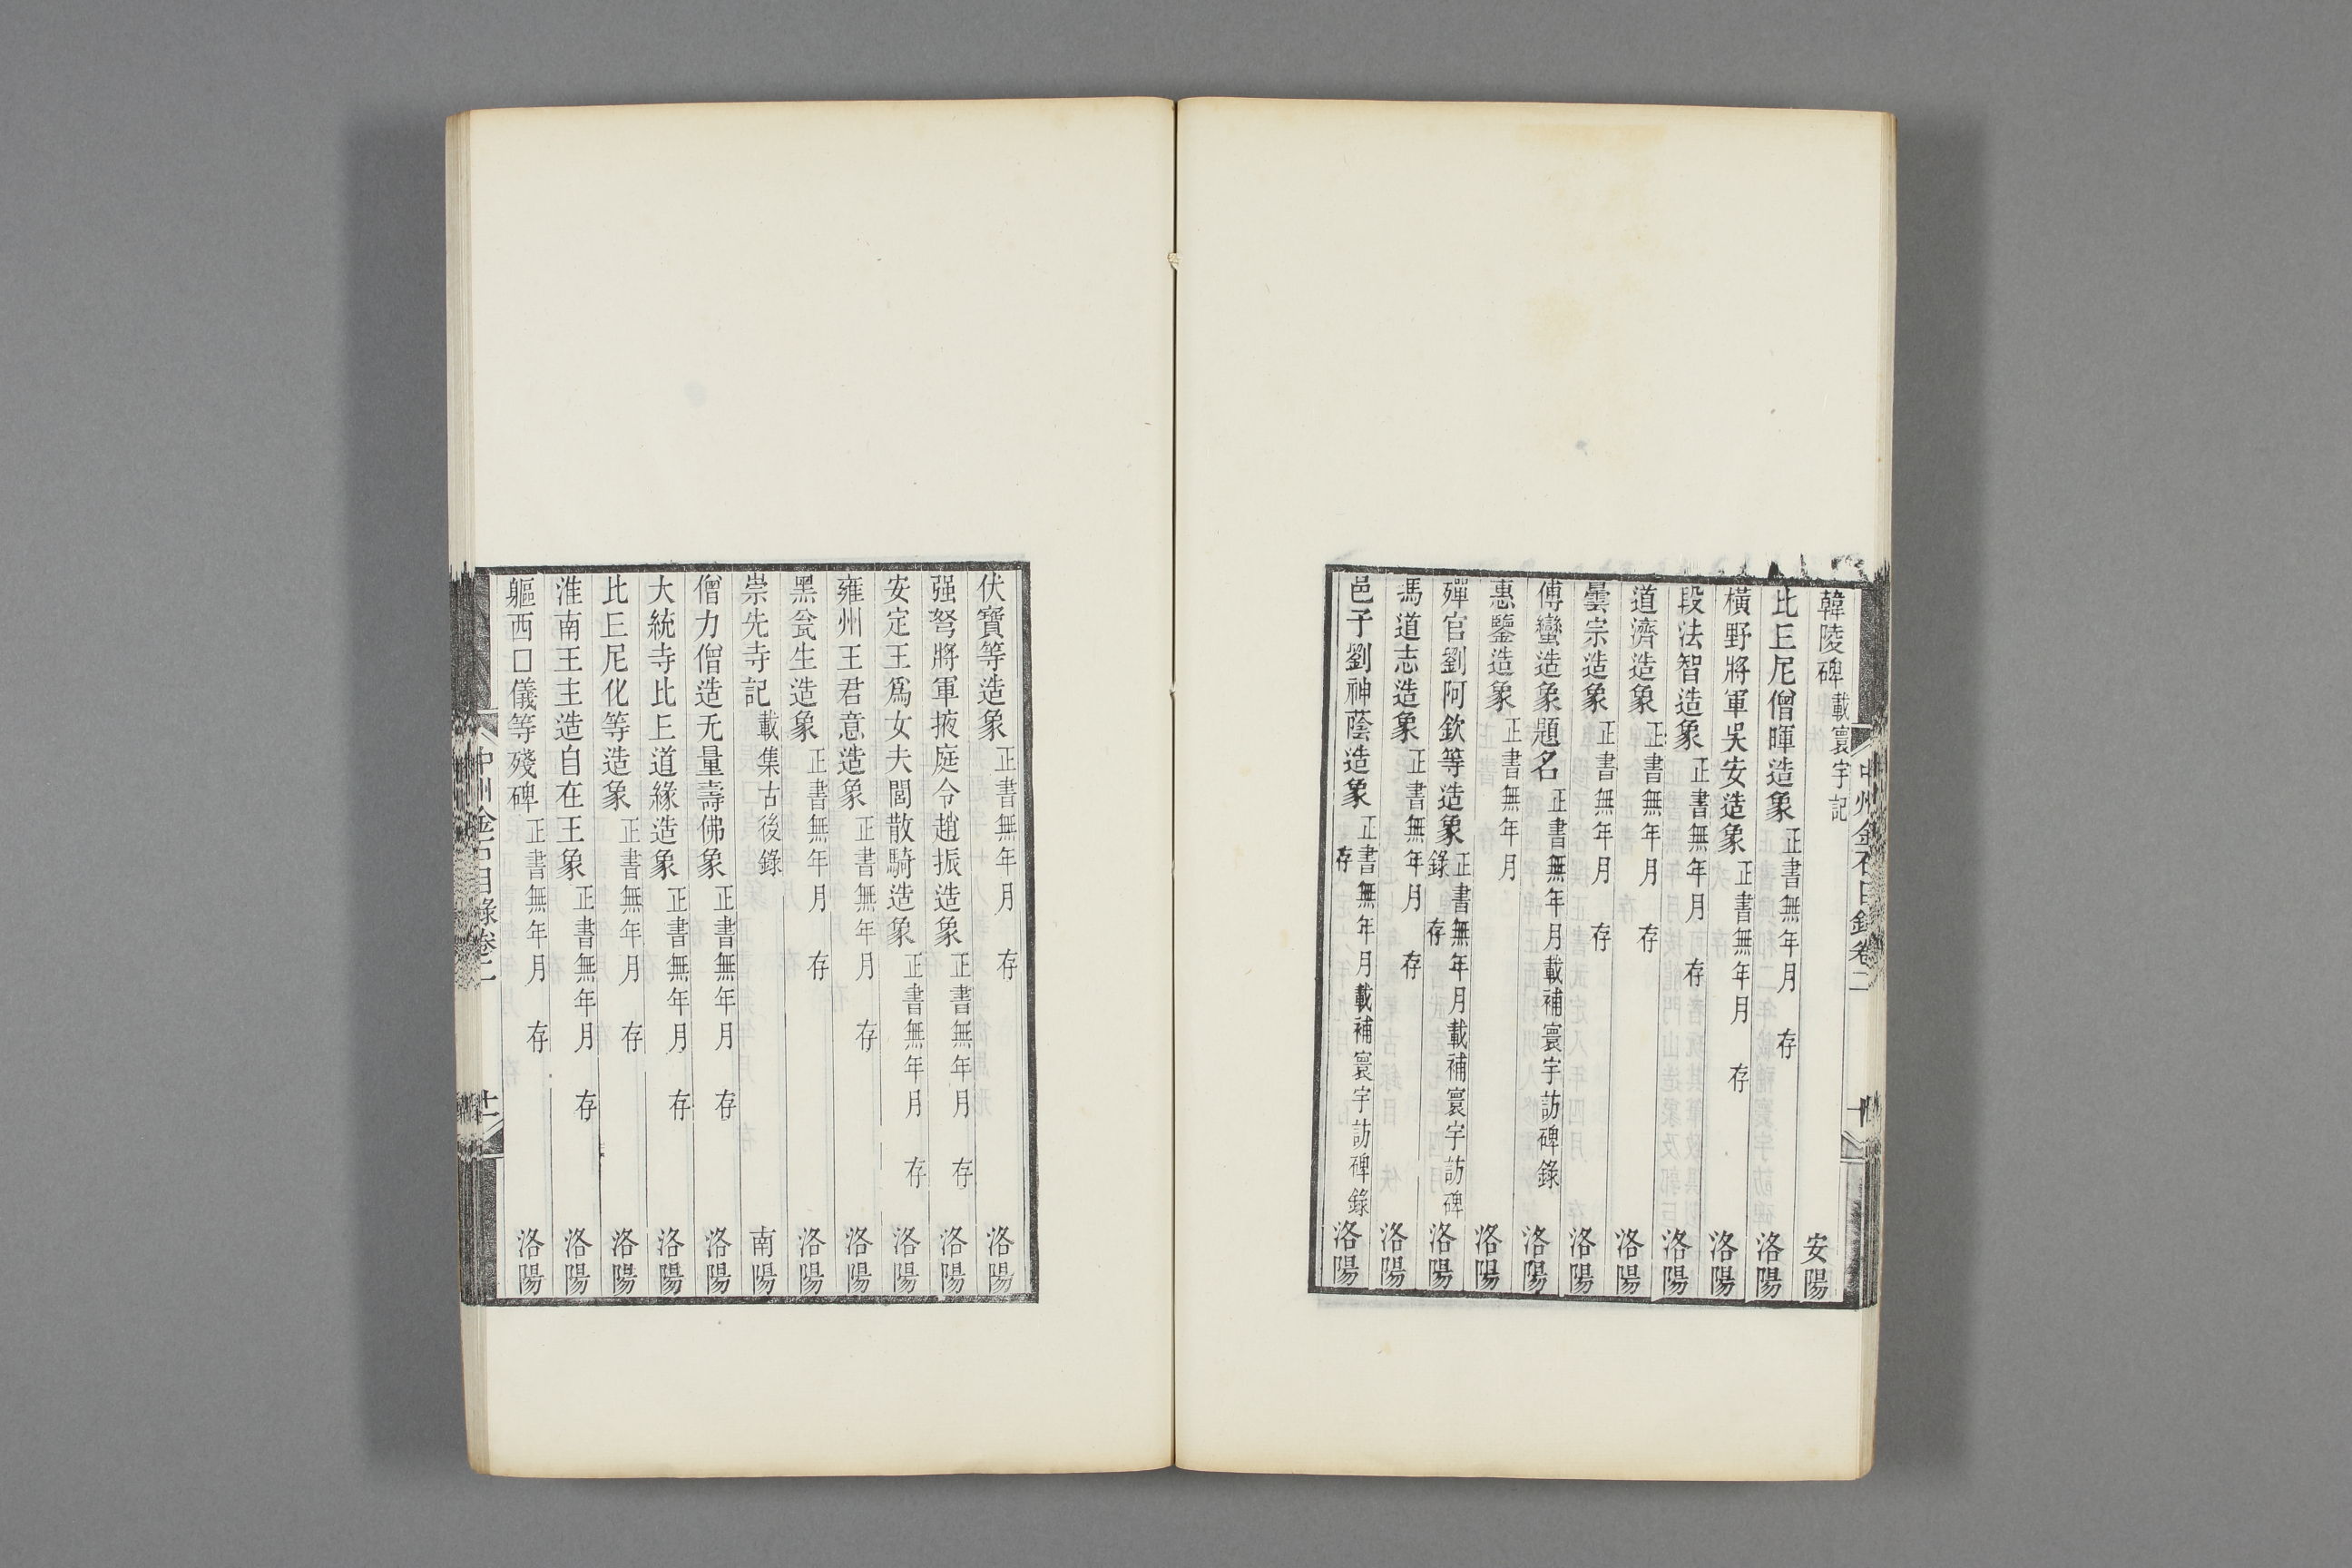 韓陵碑載寰宇記 安陽
比丘尼僧暉造象正書無年月 存 洛陽
橫野將軍吳安造象正書無年月 存 洛陽
段法智造象正書無年月 存 洛陽
道濟造象正書無年月 存 洛陽
曇宗造象正書無年月 存 洛陽
傅蠻造象題名正書無年月載補寰宇訪碑錄 洛陽
惠鑒造象正書無年月 洛陽
殫官劉阿欽等造象正書無年月載補寰宇訪碑錄 存 洛陽
馮道志造象正書無年月 存 洛陽
邑子劉神蔭造象正書無年月載補寰宇訪碑錄存 洛陽
中州金石目錄卷二 十
伏寶等造象正書無年月 存 洛陽
强弩將軍掖庭令趙振造象正書無年月 存 洛陽
安定王爲女夫閭散騎造象正書無年月 存 洛陽
雍州王君意造象正書無年月 存 洛陽
黑瓮生造象正書無年月 存 洛陽
崇先寺記載集古後錄 南陽
僧力僧造无量壽佛象正書無年月 存 洛陽
大統寺比丘道緣造象正書無年月 存 洛陽
比丘尼化等造象正書無年月 存 洛陽
淮南王主造自在王象正書無年月 存 洛陽
軀西囗儀等殘碑正書無年月 存 洛陽
中州金石目錄卷二 十一